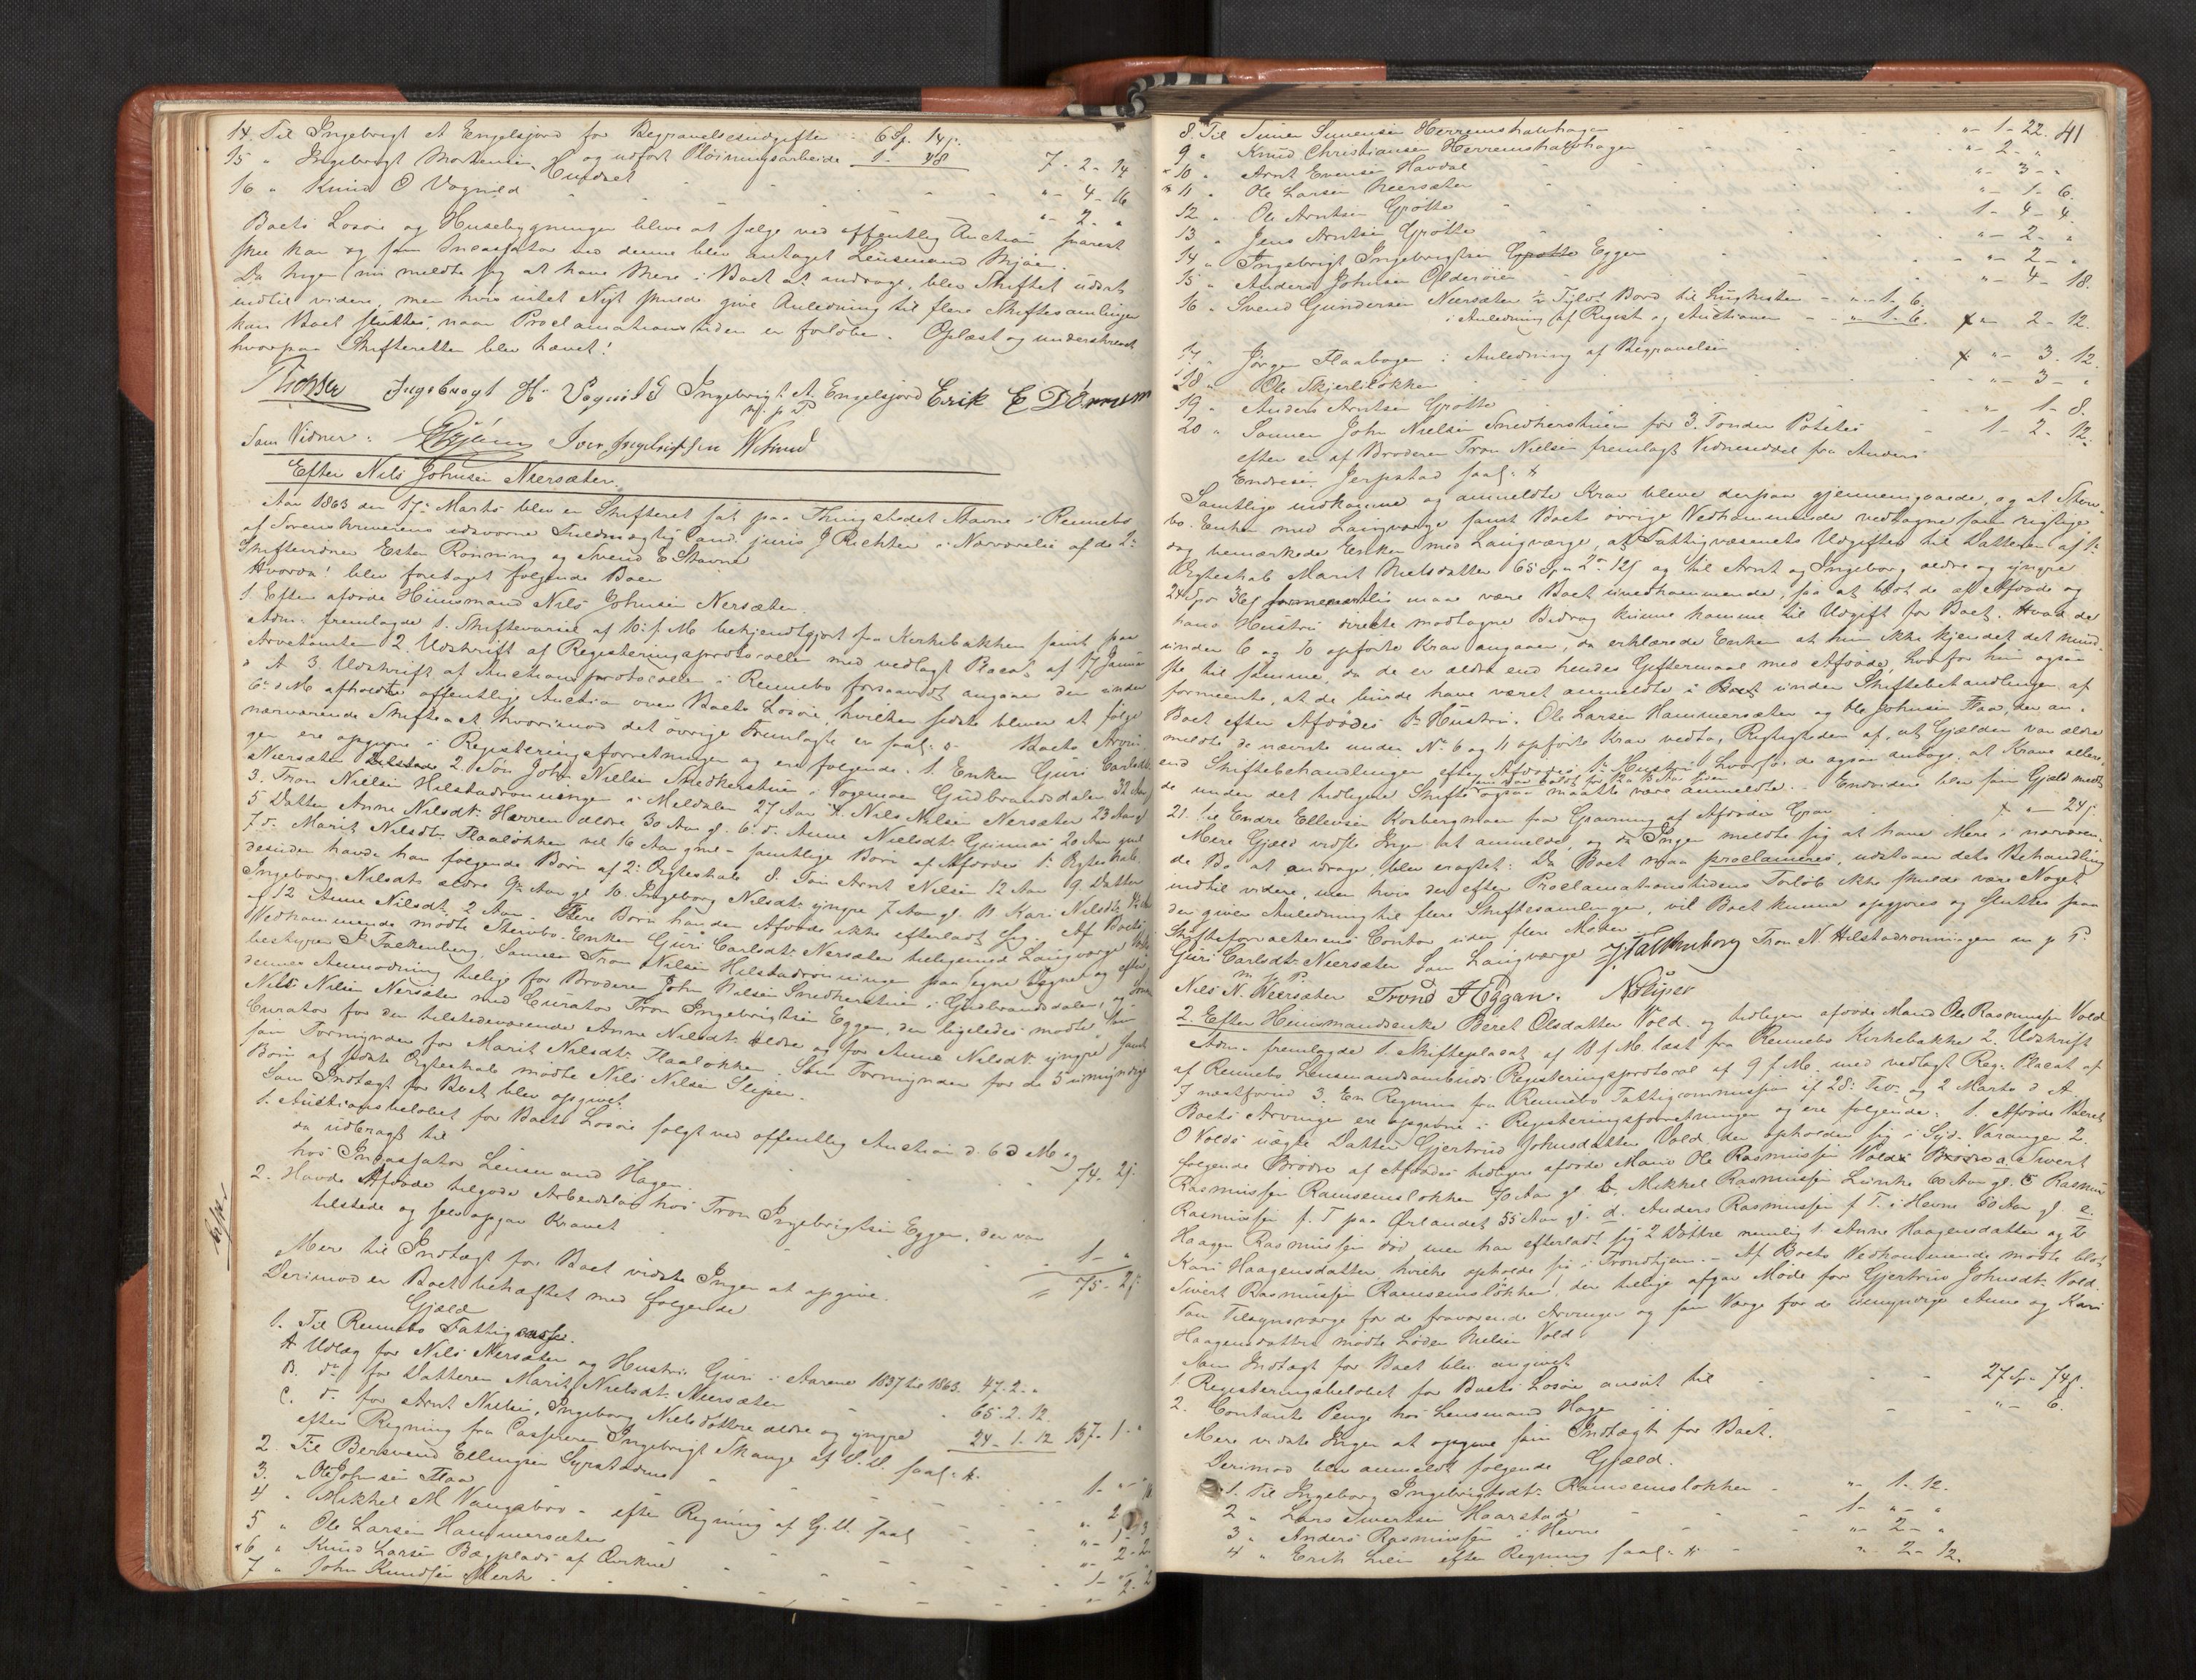 14. Til Ingebrigt A Engelsjord for Begravelsesudgifter 6 Sp. 14 s.
og udført Pløiningsarbeide 1 - 48 7 - 2 - 14
15 " Ingebrigt Mortensen Hundset " - 4 - 16
16 " Knud O Vognild " - 2 - "
Boets Løsøre og Husebygninger bliver at sælge ved offentlig Auction snarest
skee kan og som Incassator ved denne blev antaget Lensmand Mjøen.
Da Ingen nu meldte sig at have Mere i Boet at andrage, blev Skiftet udsat
indtil videre, men hvis intet Nyt skulde give Anledning til flere Skiftesamlinger
kan Boet sluttes, naar Proclamationstiden er forløben. Oplæst og underskrevet
hvorpaa Skifteretten blev hævet!
Richter Ingebregt H. Vognild Ingebrigt A. Engelsjord Erik E Dörrum
m. p. P
Som Vidner: Iver Ingebrigtsen
Efter Nils Johnsen Nersæter.
Aar 1863 den 17de Marts blev en Skifteret sat paa Thingstedet Stavne i Rennebo
af Sorenskriverens edsvorne Fuldmægtig Cand. juris J Richter i Nærværelse af de 2de
Skiftevidner Esten Rønning og Svend E Stavne
Hvorda! blev foretaget følgende Boer
1. Efter afdøde Huusmand Nils Johnsen Nersæter.
Adm. fremlagde 1. Skiftevarsel af 10. f M bekjendtgjort fra Kirkebakken samt paa
Arvetomten 2. Udskrift af Registreringsprotocollen med vedlagt Placat af 17 Januar
d. A 3. Udskrift af Auctionsprotocollen i Rennebo forsaavidt angaaer den under
6te d M afholdte offentlige Auction over Boets Løsøre, hvilken sidste bliver at følge
nærværende Skifteact hvorimod det øvrige Fremlagte er saal:
Boets Arvin-
ger ere opgivne i Registreringsforretningen og ere følgende. 1. Enken Guri Carlsdtr
Nersæter 2. Søn John Nielsen Snedkerstuen i Gudbrandsdalen 32 Aar
3. Tron Nielsen Hilstadrønningen i Meldalen 27 Aar 4. Nils Nilsen Nersæter 23 Aar gl
5 Datter Anne Nilsdtr Herrem ældre 30 Aar gl. 6. d. Anne Nielsdtr 20 Aar gml
7 d. Marit Nilsdtr Flaaløkken vel 16 Aar gml - samtlige Børn af Afdødes 1ste Ægteskab.
desuden havde han følgende Børn af 2det Ægteskab 8. Søn Arnt Nilsen 12 Aar 9 Datter
Ingeborg Nilsdtr ældre 9 Aar gl 10. Ingeborg Nilsdtr yngre 7 Aar gl. 11 Kari Nilsdtr
og 12 Anne Nilsdtr 2 Aar. Flere Børn har den Afdøde ikke efterladt sig. Af Boets
Vedkommende mødte Stervbo-Enken Guri Carlsdtr Nersæter tilligemed Laugværge
bestyrer Falkenberg, Sønnen Tron Nilsen Hilstadrønningen paa egne Vegne og efter
dennes Anmodning tillige for Broderen John Nilsen Snedkerstuen i Gudbrandsdalen, og
Nils Nilsen Nersæter med Curator Tron Ingebrigtsen Eggen, der ligeledes mødte som
Curator for den tilstedeværende Anne Nilsdtr ældre og for Anne Nilsdtr yngre samt
som Formynder for Marit Nilsdtr Flaaløkken. Som Formynder for de 5 umyndige
Børn af sidste Ægteskab mødte Nils Nilsen Slipper.
Som Indtægt for Boet blev opgivet
1. Auctionsbeløbet for Boets Løsøre solgt ved offentlig Auction d. 6 d M og
da udbragt til 74 - 2 s.
hos Incassator Lensmand Hagen.
2. Havde Afdøde tilgode Arbeidsløn hos Tron Ingebrigtsen Eggen, der var
tilstede og selv opgav Kravet 1 - "
= 75 - 2 s
Mere til Indtægt for Boet vidste Ingen at opgive.
Derimod er Boet behæftet med følgende
Gjæld
1. Til Rennebo Fattigcasse.
A Udlæg for Nils Nersæter og Hustru Guri i Aarene 1837 til 1863. 47. 2. "
B. do for Datteren Marit Nielsdtr Nersæter 65. 2. 12.
C. do for Arnt Nilsen, Ingeborg Nielsdøttre ældre og yngre 24 - 1 - 12 137 - 1 - "
efter Regning fra Casserer Ingebrigt Skauge
2. Til Bersvend Ellingsen 1 - " - "
3. " Ole Johnsen Flaa
4 " Mikkel M Vangsbro - efter Regning
5 " Ole Larsen Hammersæter
6 " Knud Larsen Bægplads af Opdal
7 " John Knudsen Merk
41
8. Til Simen Simensen Herremshalvhagen " - 1 - 22.
9 " Knud Christiansen Herremshalvhagen " - 2 - "
10 " Arnt Evensen Havdal " - 3 - "
11 " Ole Larsen Neersæter " - 1 - 6.
12 " Ole Arntsen Grøtte 1 - 4 - 4.
13 " Jens Arntsen Grøtte " - 2 - "
14 " Ingebrigt Ingebrigtsen Grøtte Eggen " - 2 - "
15 " Anders Johnsen Olderøien " - 4 - 18.
16 " Svend Gundersen Neersæter ½ Tylvt Bord til Liigkisten - " - 1 - 6.
i Anledning af Regist. og Auctionen - " 1 - 6. " 2 - 12.
17 " Jørgen Flaabogen i Anledning af Begravelsen " - 3 - 12.
18 " Ole Skjerliløkken " - 3 - "
19 " Anders Arntsen Grøtte " - 1 - 8.
20 " Sønnen John Nielsen Snedkerstuen for 3. Tønder Potetes 1 - 2 - 12.
efter en af Broderen Tron Nielsen fremlagt Vidneseddel fra Anders
Endresen Jerpstad saal:
Samtlige indkomne og anmeldte Krav bleve derpaa gjennemgaaede, og af Sterv-
bo-Enken med Laugværge samt Boets øvrige Vedkommende vedtagne som rigtige
dog bemærkede Enken med Laugværge, at Fattigvæsenets Udgifter til Datteren af 1ste
Ægteskab Marit Nielsdatter 65 Sp 2 12 s og til Arnt og Ingeborg ældre og yngre
24 Spd 36 s formeentlig maa være Boet uvedkommende, saa at blot de af Afdøde og
hans Hustru directe modtagne Bidrag kunne komme til Udgift for Boet. Hvad de
under 6 og 10 opførte Krav angaaer, da erklærede Enken at hun ikke kjendte det mind-
ste til samme, da de er ældre end hendes Giftermaal med Afdøde, hvorfor hun ogsaa
formeente, at de burde have været anmeldte i Boet under Skiftebehandlingen af
Boet efter Afdødes 1ste Hustru. Ole Larsen Hammersæter og Ole Johnsen Flaa, der an-
meldte de nævnte under No 6 og 11 opførte Krav vedtog Rigtigheden af, at Gjælden var ældre
end Skiftebehandlingen efter Afdødes 1ste Hustru hvorfor de ogsaa antog, at Kravene allere-
de under det tidligere Skifte som var holdt for 12 a 13 Aar siden ogsaa maatte være anmeldte. - Endvidere blev som Gjæld meddt
21. Til Endre Ellevsen Kosbergmoen for Gravning af Afdødes Grav " 24 s.
Mere Gjæld vidste Ingen at anmelde, og da Ingen meldte sig at have Mere i nærværen-
de Bo at andrage, blev eragtet: Da Boet maa proclameres, udstaaer dets Behandling
indtil videre, men hvis der efter Proclamationstidens Forløb ikke skulde være Noget
der giver Anledning til flere Skiftesamlinger, vil Boet kunne opgjøres og sluttes paa
Skifteforvalterens Contor uden flere Møder.
Guri Carlsdtr Neersæter Som Laugværge J. Falkenberg Tron N. Hilstadrønningen m p P.
m. p. P.
Nils N. Neersæter Trond I Eggan. N Sliper
2. Efter Huusmandsenke Beret Olsdatter Vold og tidligere afdøde Mand Ole Rasmussen Vold
Adm. fremlagde 1. Skifteplacat af 10 f M. læst fra Rennebo Kirkebakke 2. Udskrift
af Rennebo Lensmandsombuds Registreringsprotocol af 9 f M. med vedlagt Reg. Placat af
7 næstforud 3. En Regning fra Rennebo Fattigcommission af 28. Febr. og 2 Marts d A
Boets Arvinger ere opgivne i Registreringsforretningen og ere følgende: 1. Afdøde Beret
O Volds uægte Datter Gjertrud Johnsdatter Vold, der opholder sig i Syd-Varanger 2.
følgende Brødre af Afdødes tidligere afdøde Mand Ole Rasmussen Vold: a. Sivert
Rasmussen Ramsemsløkken 70 Aar gl. b. Mikkel Rasmussen 60 Aar gl. c Rasmus
Rasmussen f. T paa Ørlandet 55 Aar gl. d. Anders Rasmussen f T. i Hevne 50 Aar gl e.
Haagen Rasmussen død, men har efterladt sig 2 Døttre nemlig 1. Anne Haagensdatter og 2
Kari Haagensdatter hvilke opholde sig i Trondhjem. - Af Boets Vedkommende mødte blot
Sivert Rasmussen Ramsemsløkken, der tillige afgav Møde for Gjertrud Johnsdtr Vold.
Som Tilsynsværge for de fraværende Arvinger og som Værge for de umyndige Anne og Kari
Haagensdøttre mødte Loden Nielsen Vold
Som Indtægt for Boet blev angivet
1. Registreringsbeløbet for Boets Løsøre ansat til 27 Sp - 74 s.
2. Contante Penge hos Lensmand Hagen " - 6.
Mere vidste Ingen at opgive som Indtægt for Boet.
Derimod blev anmeldt følgende Gjæld.
1. Til Ingeborg Ingebrigtsdtr Ramsemsløkken " - 1 - 12.
2 " Lars Sivertsen Haarstad 1 - " - "
3 " Anders Rasmussen i Hevne " - 2 - "
4 " Erik Lien efter Regning saal: " - 2 - 12.